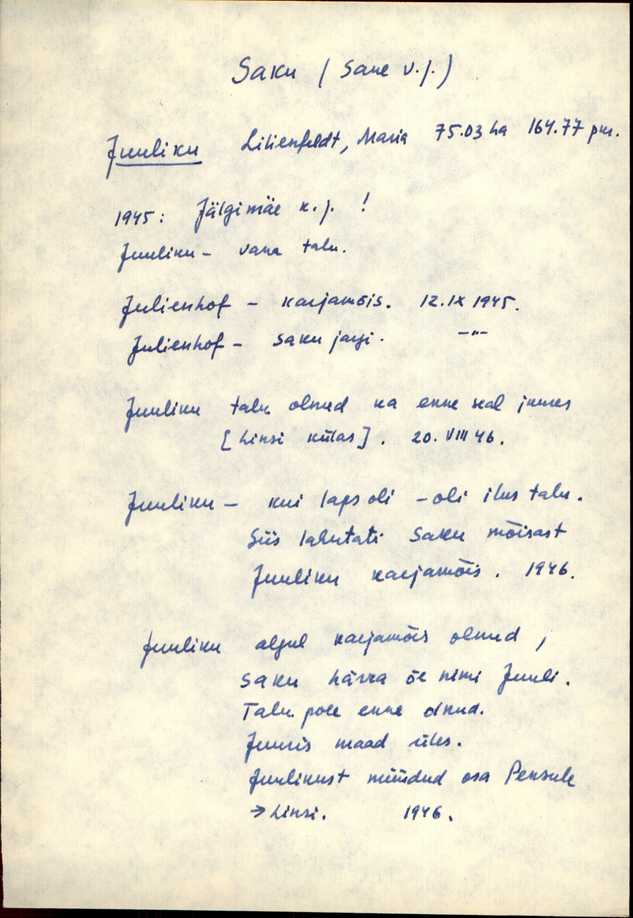 Saku (Sane v.j.)
Juuliku Lilienfeldt, Maria 75.03 ha 164.77 pm.
1945: Jälgimäe k.j. !
Juuliku - vana talu.
Julienhof - karjamõis. 12.IX 1945.
Julienhof - Saku järgi. -"-
Juuliku talu olnud ka enne seal juures
[Linsi külas]. 20.VIII 46.
Juuliku - kui laps oli - oli ilus talu.
Siis lahutati Saku mõisast
Juuliku karjamõis. 1946.
Juuliku algul karjamõis olnud,
Saku härra õe nimi Juuli.
Talu pole enne olnud.
Juuris maad üles.
Juulikust müüdud osa
→ Linsi. 1946.